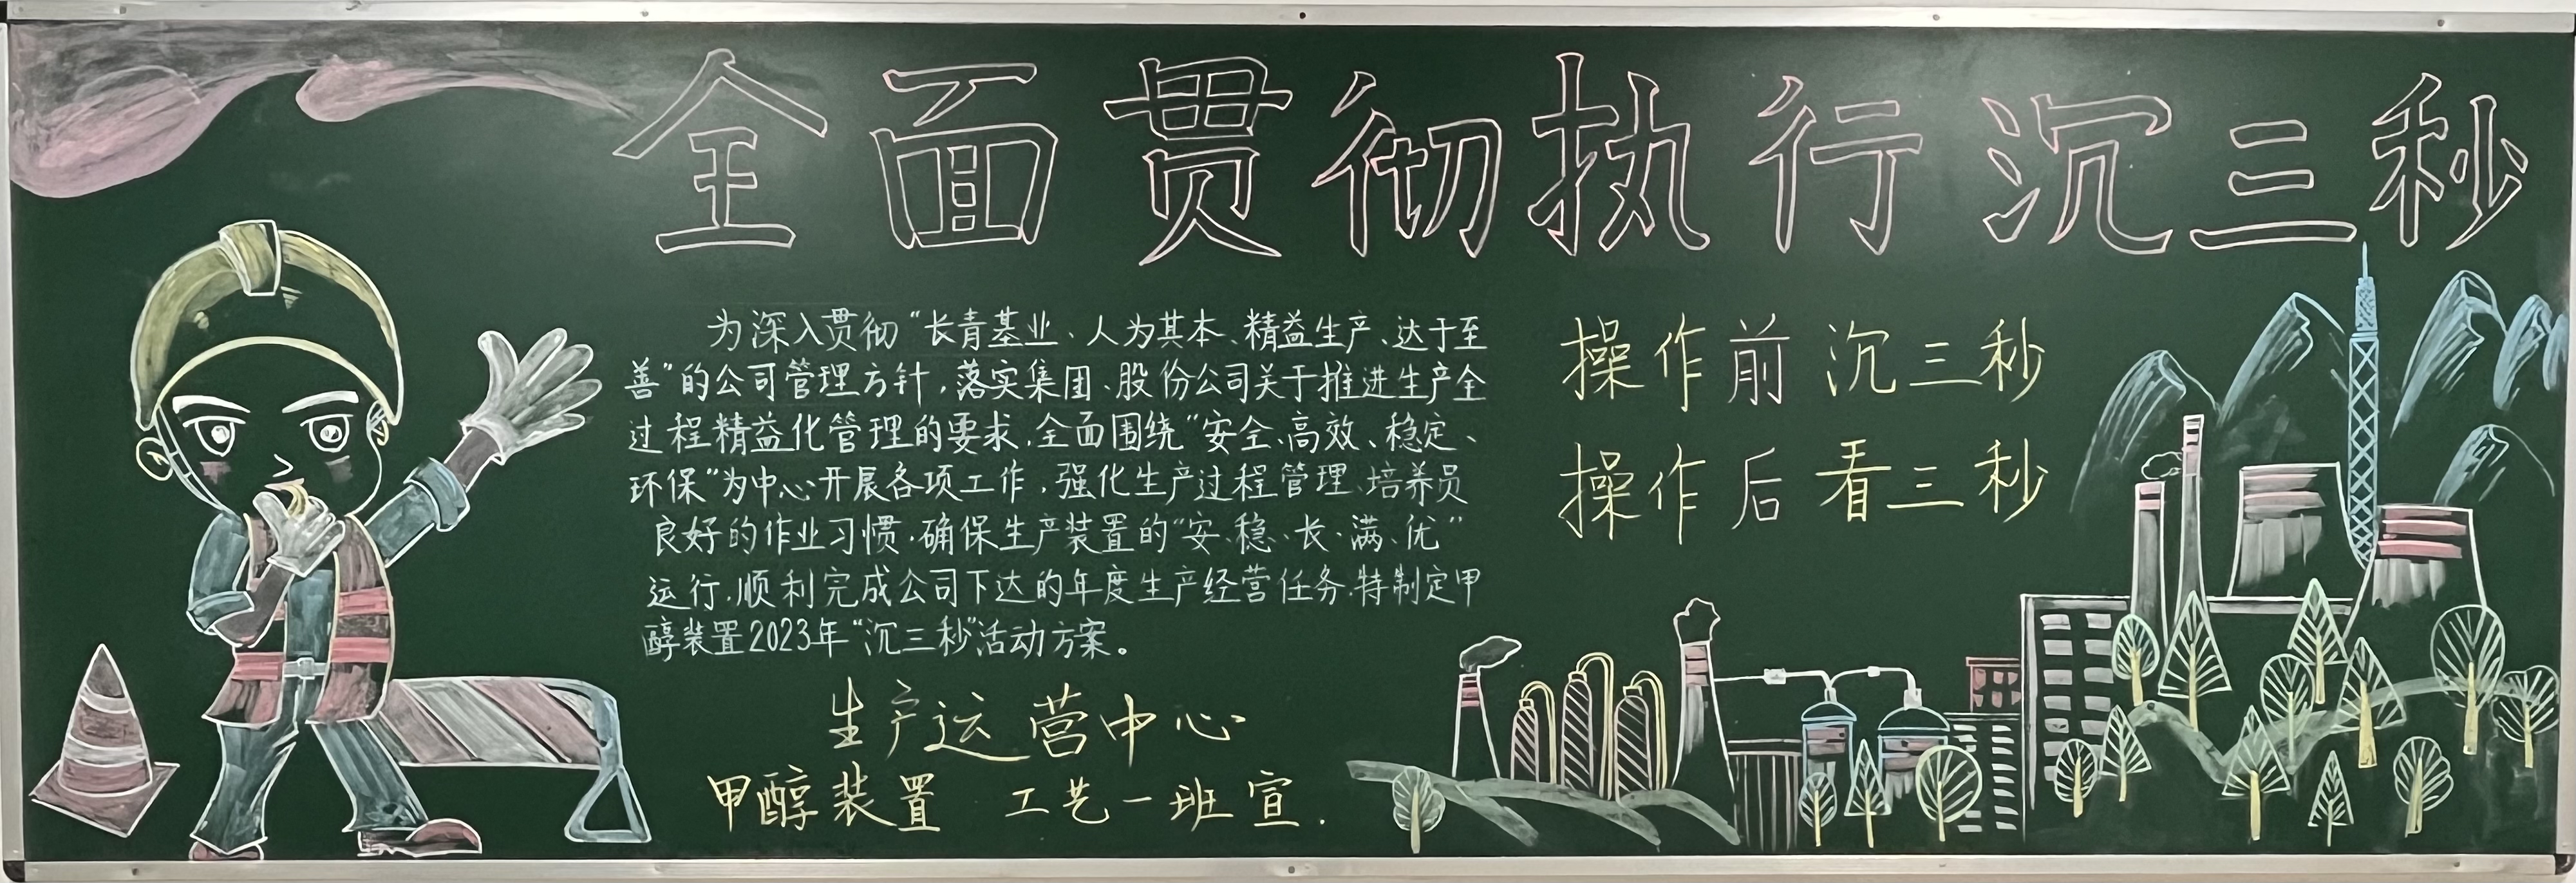 全面贯彻执行沉三秒
为深入贯彻“长青基业、人为其本、精益生产、达于至
善”的公司管理方针，落实集团、股份公司关于推进生产全
过程精益化管理的要求，全面围绕“安全、高效、稳定、
环保”为中心开展各项工作，强化生产过程管理、培养员
良好的作业习惯，确保生产装置的“安、稳、长、满、优”
运行，顺利完成公司下达的年度生产经营任务，特制定甲
醇装置2023年“沉三秒”活动方案。
操作前沉三秒
操作后看三秒
生产运营中心
甲醇装置 工艺一班 宣.